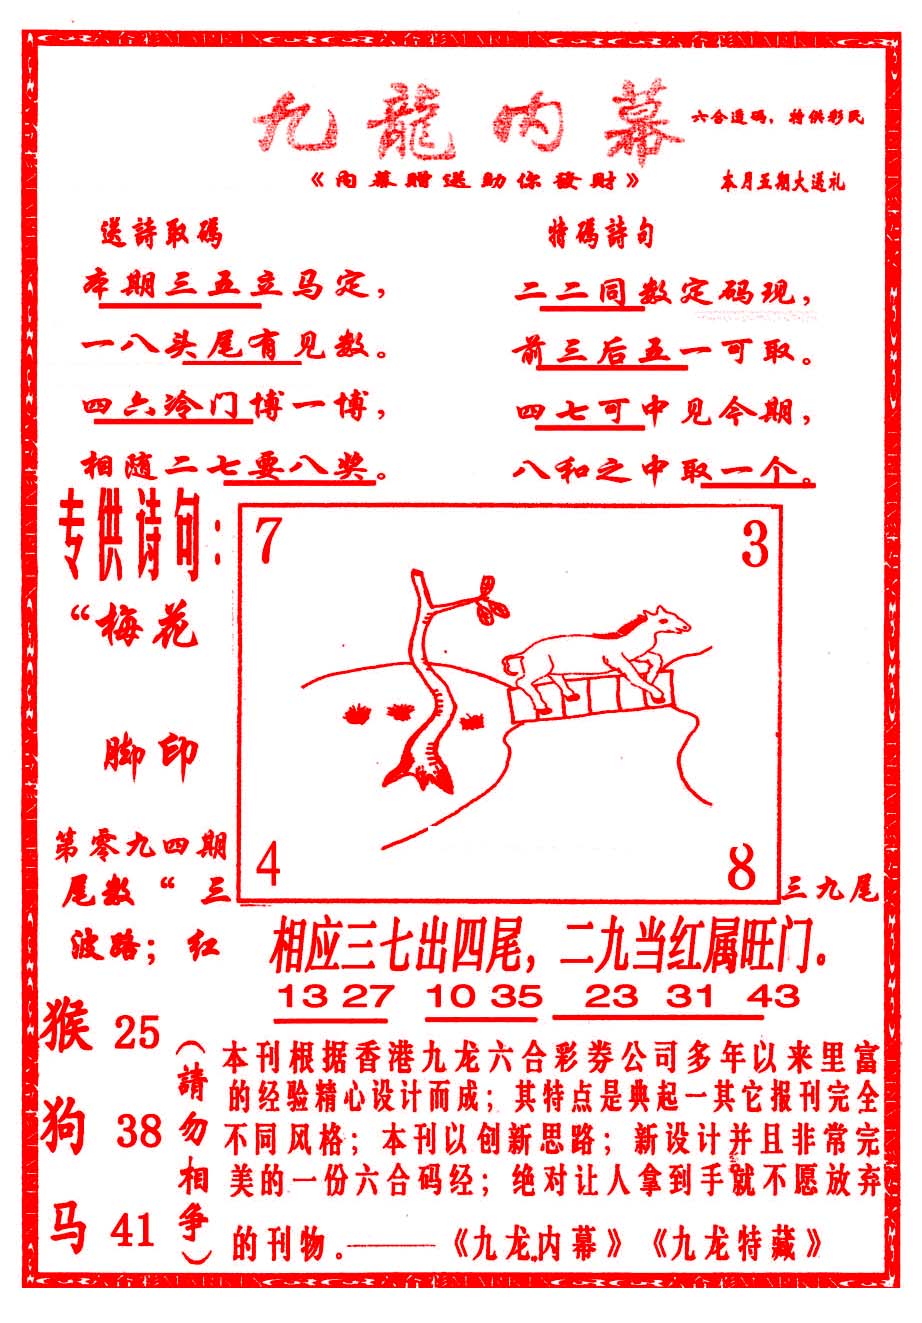 九龍内幕
六合透码，特供彩民
《内幕贈送助你發財》
本月五期大送礼
送詩取碼
本期三五立马定，
一八头尾有见数。
四六冷门博一博，
相随二七要八奖。
特碼詩句
二二同数定码现，
前三后五一可取。
四七可中见今期，
八和之中取一个。
专供诗句：
“梅花
脚印
第零九四期
尾数“三
波路；红
7
3
4
8
三九尾
相应三七出四尾，二九当红属旺门。
13 27 10 35 23 31 43
猴 25
狗 38
马 41
（請勿相争）
本刊根据香港九龙六合彩券公司多年以来里富
的经验精心设计而成；其特点是典起一其它报刊完全
不同风格；本刊以创新思路；新设计并且非常完
美的一份六合码经；绝对让人拿到手就不愿放弃
的刊物。——《九龙内幕》《九龙特藏》